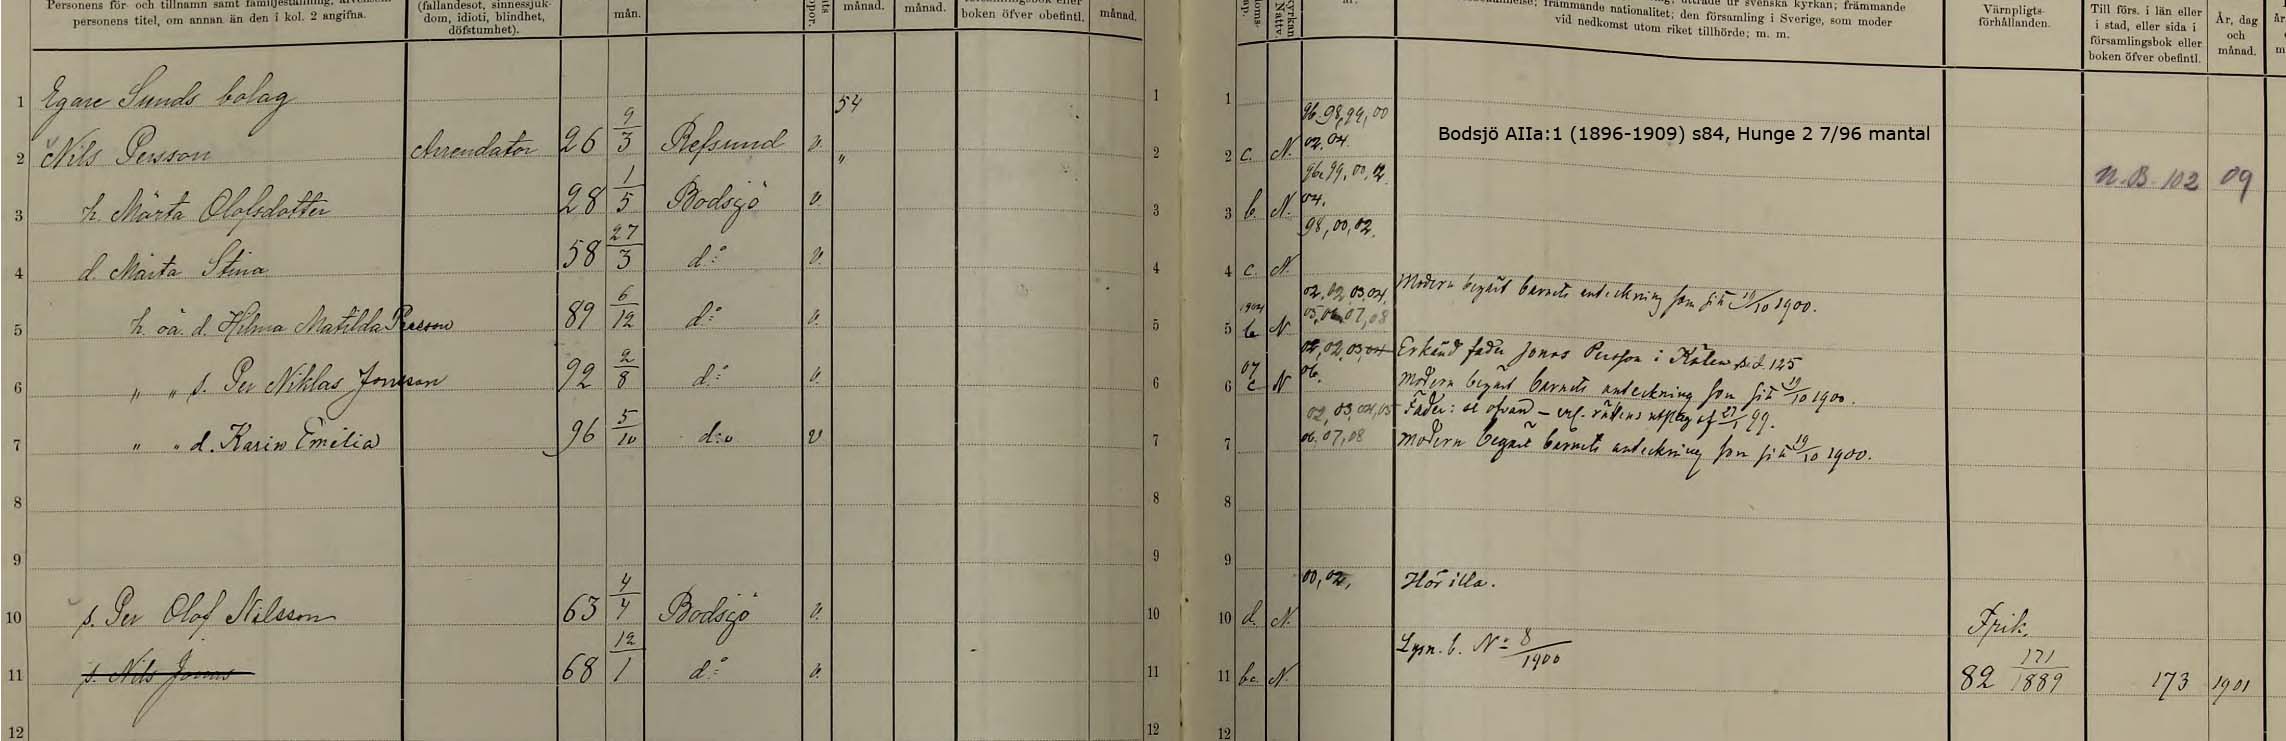 personens titel, om annan än den i kol. 2 angifna.
(fallandesot, sinnessjuk-
dom, idioti, blindhet,
döfstumhet).
mån.
månad.
månad.
boken öfver obefintl.
månad.
utträde ur svenska kyrkan; främmande
främmande nationalitet; den församling i Sverige, som moder
vid nedkomst utom riket tillhörde; m. m.
Värnpligts-
förhållanden.
Till förs. i län eller
i stad, eller sida i
församlingsbok eller
boken öfver obefintl.
År, dag
och
månad.
Bodsjö AIIa:1 (1896-1909) s84, Hunge 2 7/96 mantal
1 Egare Sunds bolag 54 1 1
2 Nils Persson Arrendator 26 9/3 Refsund v. " 2 2 c. N. 96, 98, 99, 00 02, 04. N. B. 102 09
3 h. Märta Olofsdotter 28 1/5 Bodsjö v. 3 3 b. N. 96, 99, 00, 02 04.
4 d. Märta Stina 58 27/3 d:o v. 4 4 c. N. 98, 00, 02.
5 h. oä. d. Hilma Matilda Persson 89 6/12 d:o v. 5 5 N 02, 02, 03, 04, 05, 06, 07, 08 Modern begärt barnets anteckning som sitt 19/10 1900.
6 " " s. Per Niklas Jonsson 92 2/8 d:o v. 6 6 07 c N 02, 02, 03, 04 06. Erkänd fader Jonas Persson i Kälen sid. 125
Modern begärt barnets anteckning som sitt 19/10 1900.
7 " " d. Karin Emilia 96 5/10 d:o v 7 7 02, 03, 04, 05 06, 07, 08 Fader: se ofvan – enl. rättens utslag af 27/1 99.
Modern begärt barnets anteckning som sitt 19/10 1900.
8 8 8
9 9 9
10 s. Per Olof Nilsson 63 4/4 Bodsjö v. 10 10 d. N. 00, 02, Hör illa. Frik.
11 s. Nils Jonas 68 12/1 d:o v. 11 11 bc N. Lysn. b. No 8/1900 82 171/1889 173 1901
12 12 12